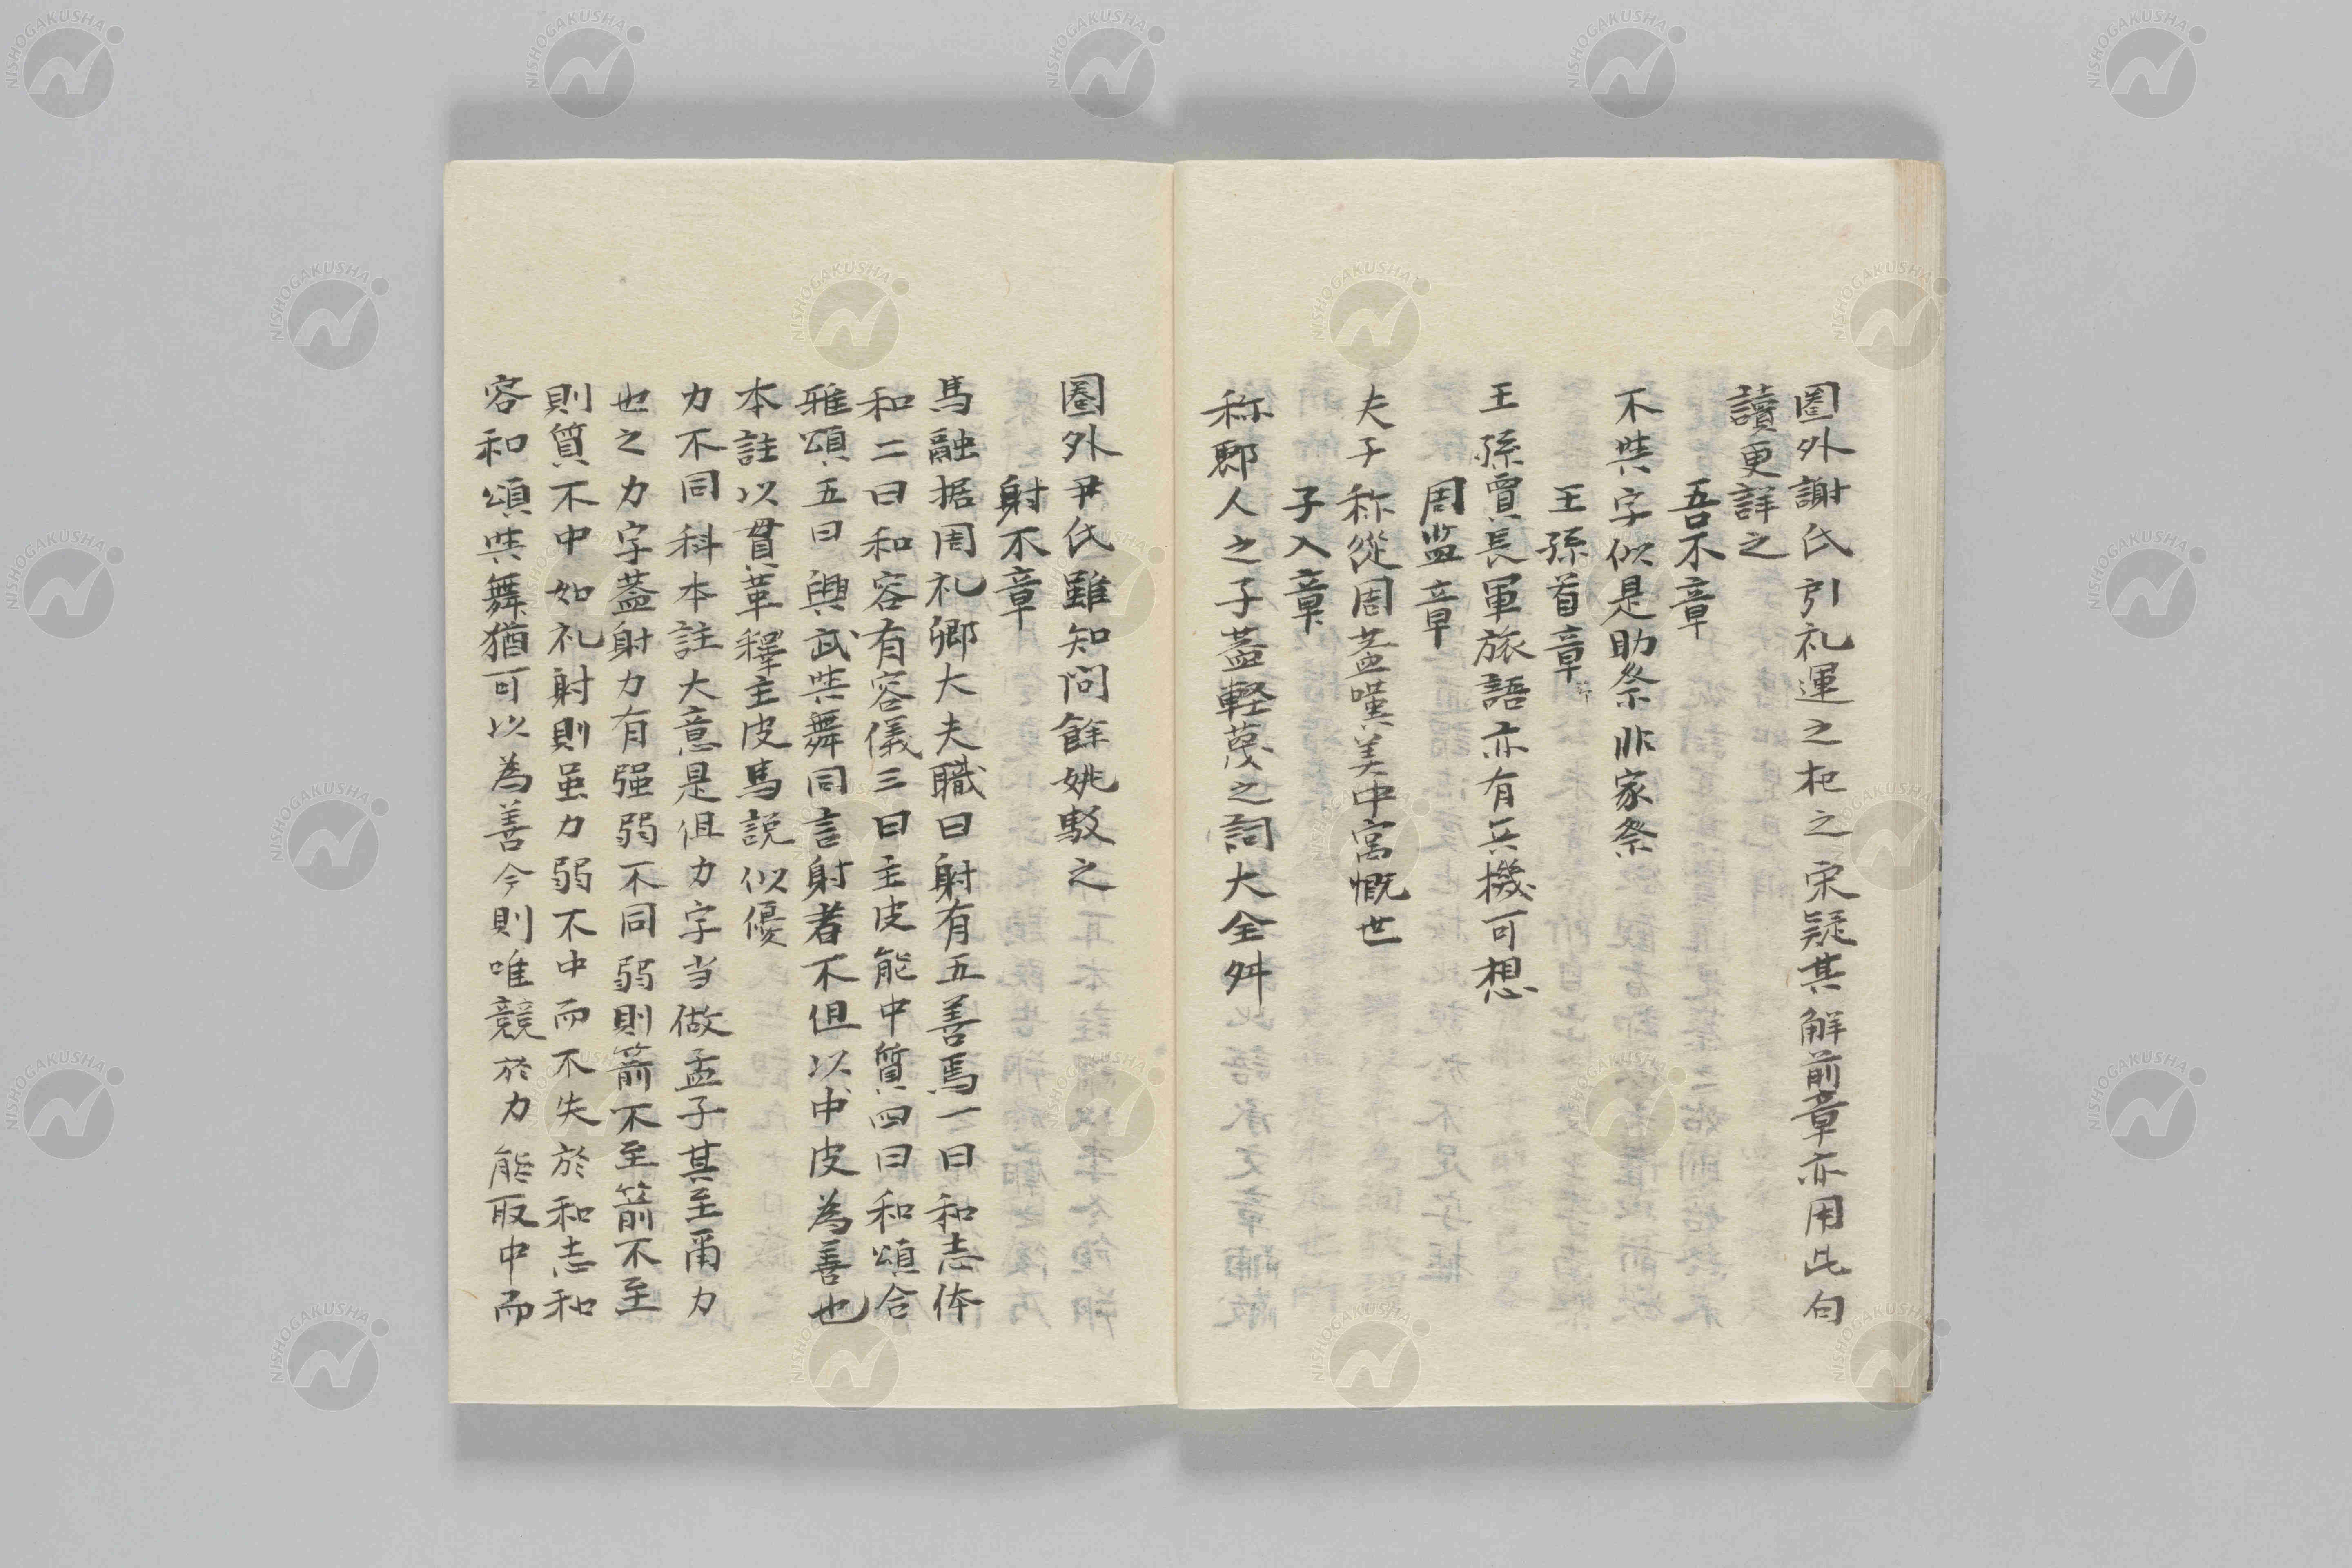 圏外謝氏引礼運之杞之宋疑其解前章亦用此句
讀更詳之
吾不章
不與字似是助祭非家祭
王孫首章
王孫賈長軍旅語亦有兵機可想
周监章
夫子称從周盖嘆美中寓慨世
子入章
称鄹人之子盖軽蔑之詞大全舛
圏外尹氏雖知問餘姚駁之
射不章
馬融据周礼卿大夫職曰射有五善焉一曰和志体
和二曰和容有容儀三曰主皮能中質四曰和頌合
雅頌五曰興武與舞同言射者不但以中皮為善也
本註以貫革釋主皮馬説似優
力不同科本註大意是但力字当做孟子其至爾力
也之力字盖射力有强弱不同弱則箭不至箭不至
則質不中如礼射則虽力弱不中而不失於和志和
容和頌與舞猶可以為善今則唯競於力能取中而
NISHOGAKUSHA